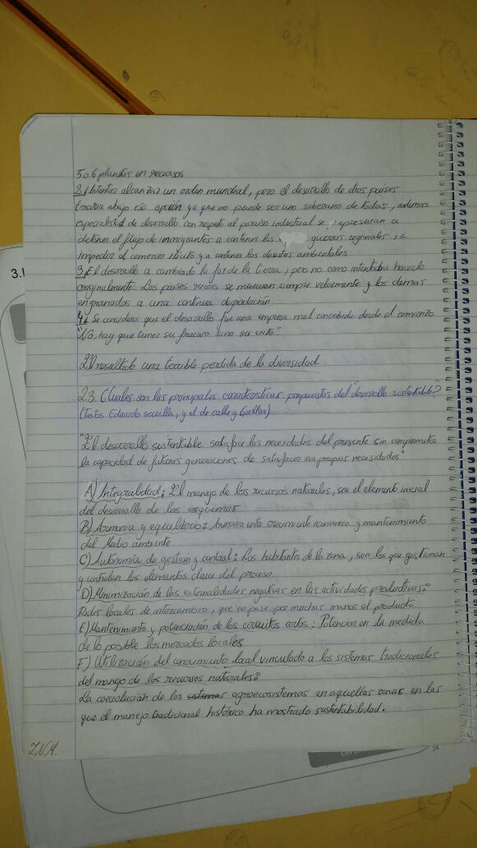 5 o 6 planetas en recursos
2) Intentar alcanzar un orden mundial, pero el desarrollo de otros países
tira abajo esa opción ya que no puede ser una soberano de todos, además
especialistas de desarrollo con respeto al paraíso industrial se a
detener el flujo de inmigrantes a contener las guerras regionales, a
impedir el comercio ilícito y a contener los desastres ambientales
3) El desarrollo a cambiado la faz de la tierra, pero no como intentaba hacerlo
originalmente. Los países se mueven siempre velozmente y los demas
engranados a una continua depredación.
4) Se considera que el desarrollo fue una empresa mal concebida desde el comienzo
"No hay que temer su fracaso sino su éxito"
El resultado una terrible perdida de la diversidad
23. Cuales son las principales características propuestas del "desarrollo sustentable"?
(Textos. Eduardo sevilla, y el de calle y Gallar)
"El desarrollo sustentable satisface las necesidades del presente sin comprometer
la capacidad de futuras generaciones de satisfacer sus propias necesidades"
A) Integralidad: El manejo de los recursos naturales, sea el elemento inicial
del desarrollo de los
B) Armonia y equilibrio: Armonia entre crecimiento economico y mantenimiento
del Medio ambiente
C) Autonomía de gestion y control: Los habitantes de la zona, son los que gestionan
y controlan los elementos clave del proceso
D) Minimización de las externalidades negativas en las actividades productivas:
Redes locales de intercambio, que no pase por muchas manos el producto
E) Mantenimiento y potenciación de los circuitos cortos: Potenciar en la medida
de lo posible los mercados locales
F) Utilización del conocimiento local vinculado a los sistemas tradicionales
del manejo de los recursos naturales:
La coevolución de los sistemas agroecosistemas en aquellas zonas en las
que el manejo tradicional histórico ha mostrado sustentabilidad.